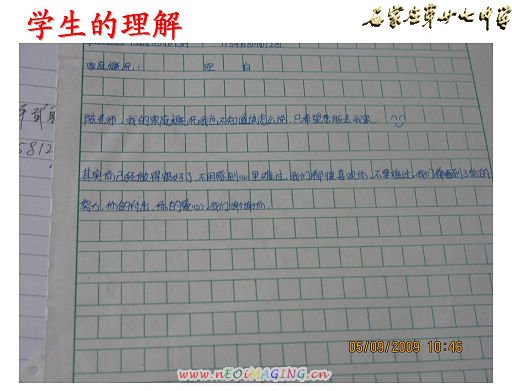 学生的理解
石家庄第廿七中学
家庭概况: 空 白
陈老师,我的家庭概况我也不知道该怎么说,只希望您能去我家.
其实你已经做得很好了,不用感到心里难过,我们都很喜欢你,不要难过,我们都看到了你的
努力,你的付出,你的爱心,我们谢谢你.
5812
05/09/2009 10:46
www.nEOiMAGING.cn